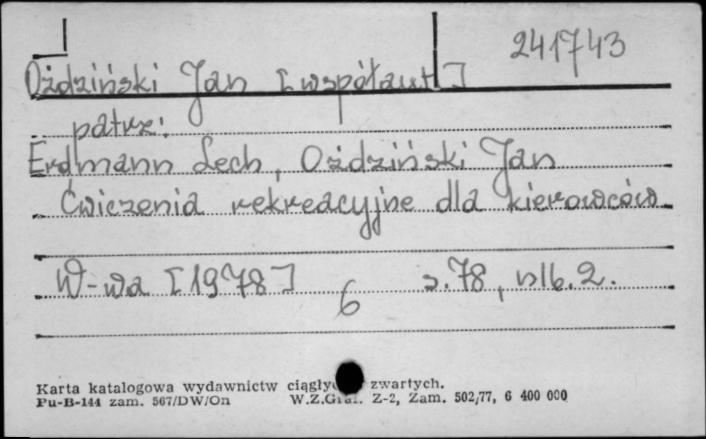 241743
Oździński Jan [współaut]
patrz:
Erdmann Lech, Oździński Jan
Ćwiczenia rekreacyjne dla kierowców
W-wa [1978] s.78, nlb.2.
6
Karta katalogowa wydawnictw zwartych.
Pu-B-144 zam. 567/DW/On W.Z.Graf. Z-2, Zam. 502/77, 6 400 000